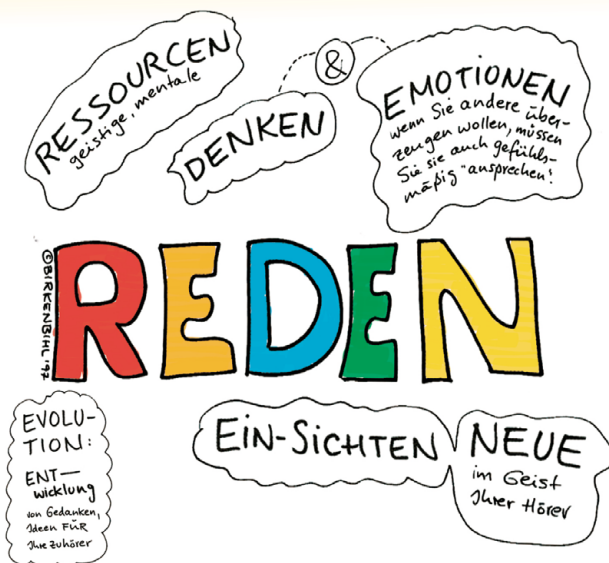 RESSOURCEN
geistige, mentale
DENKEN
&
EMOTIONEN
wenn Sie andere über-
zeugen wollen, müssen
Sie sie auch gefühls-
mäßig "ansprechen!
REDEN
©BIRKENBIHL '97
EVOLU-
TION:
ENT—
wicklung
von Gedanken,
Ideen FÜR
Ihre Zuhörer
EiN-SiCHTEN
NEUE
im Geist
Ihrer Hörer